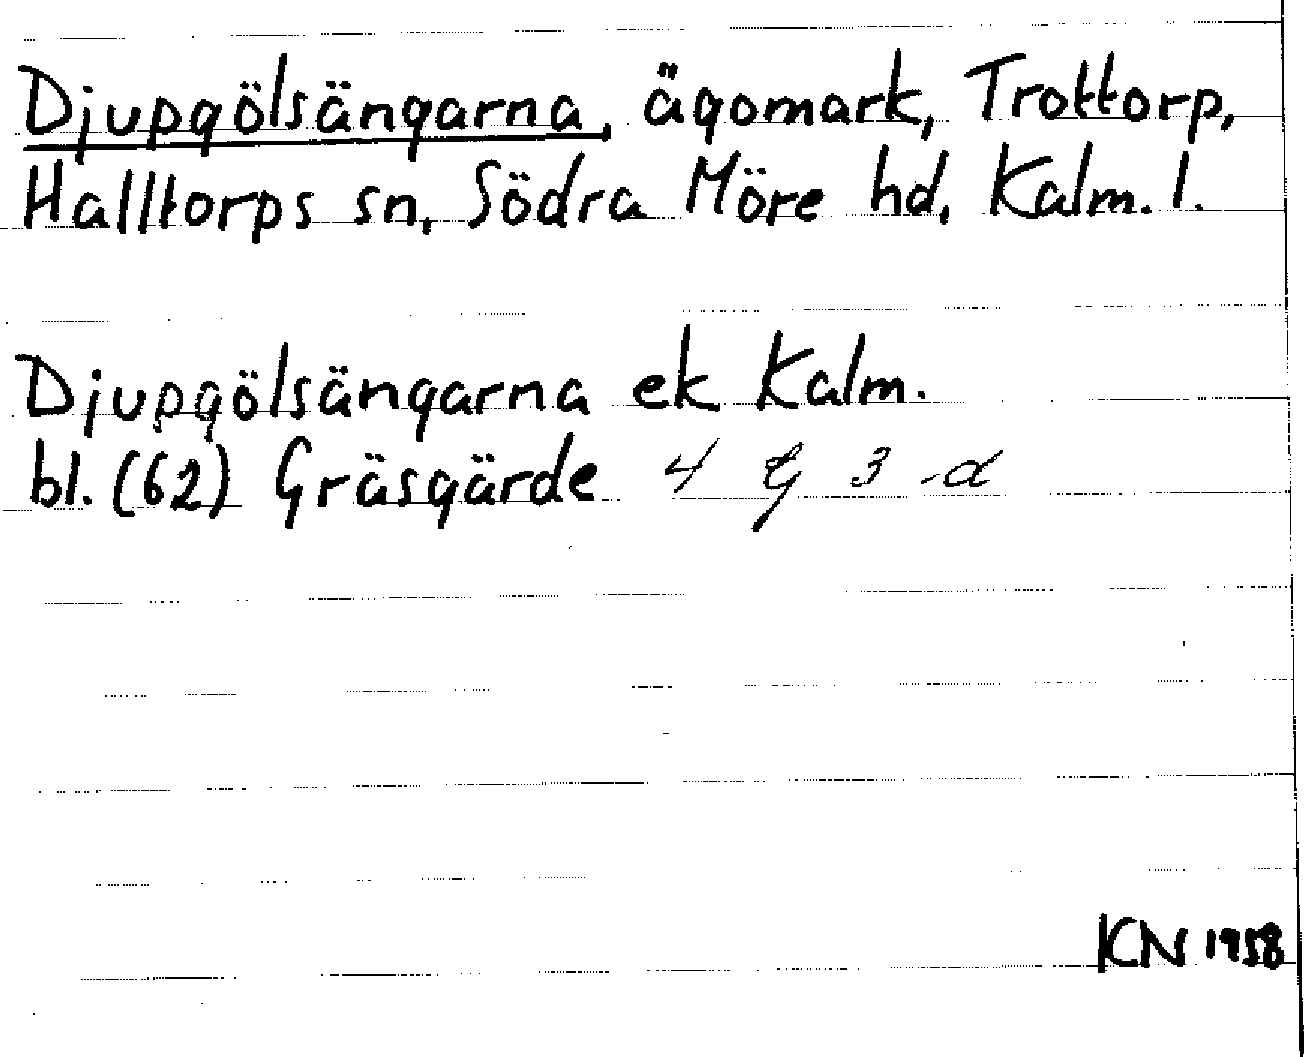 Djupgölsängarna, ägomark, Trottorp,
Halltorps sn, Södra Möre hd, Kalm. l.
Djupgölsängarna ek Kalm.
bl. (62) Gräsgärde 4 G 3 d
KN 1958